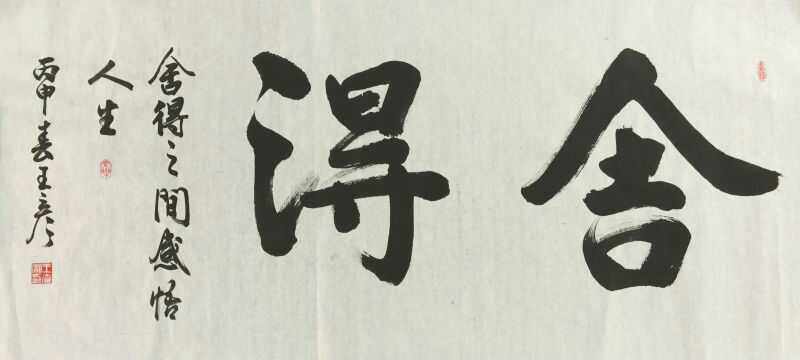 舍得
舍得之間感悟
人生
丙申春王彦